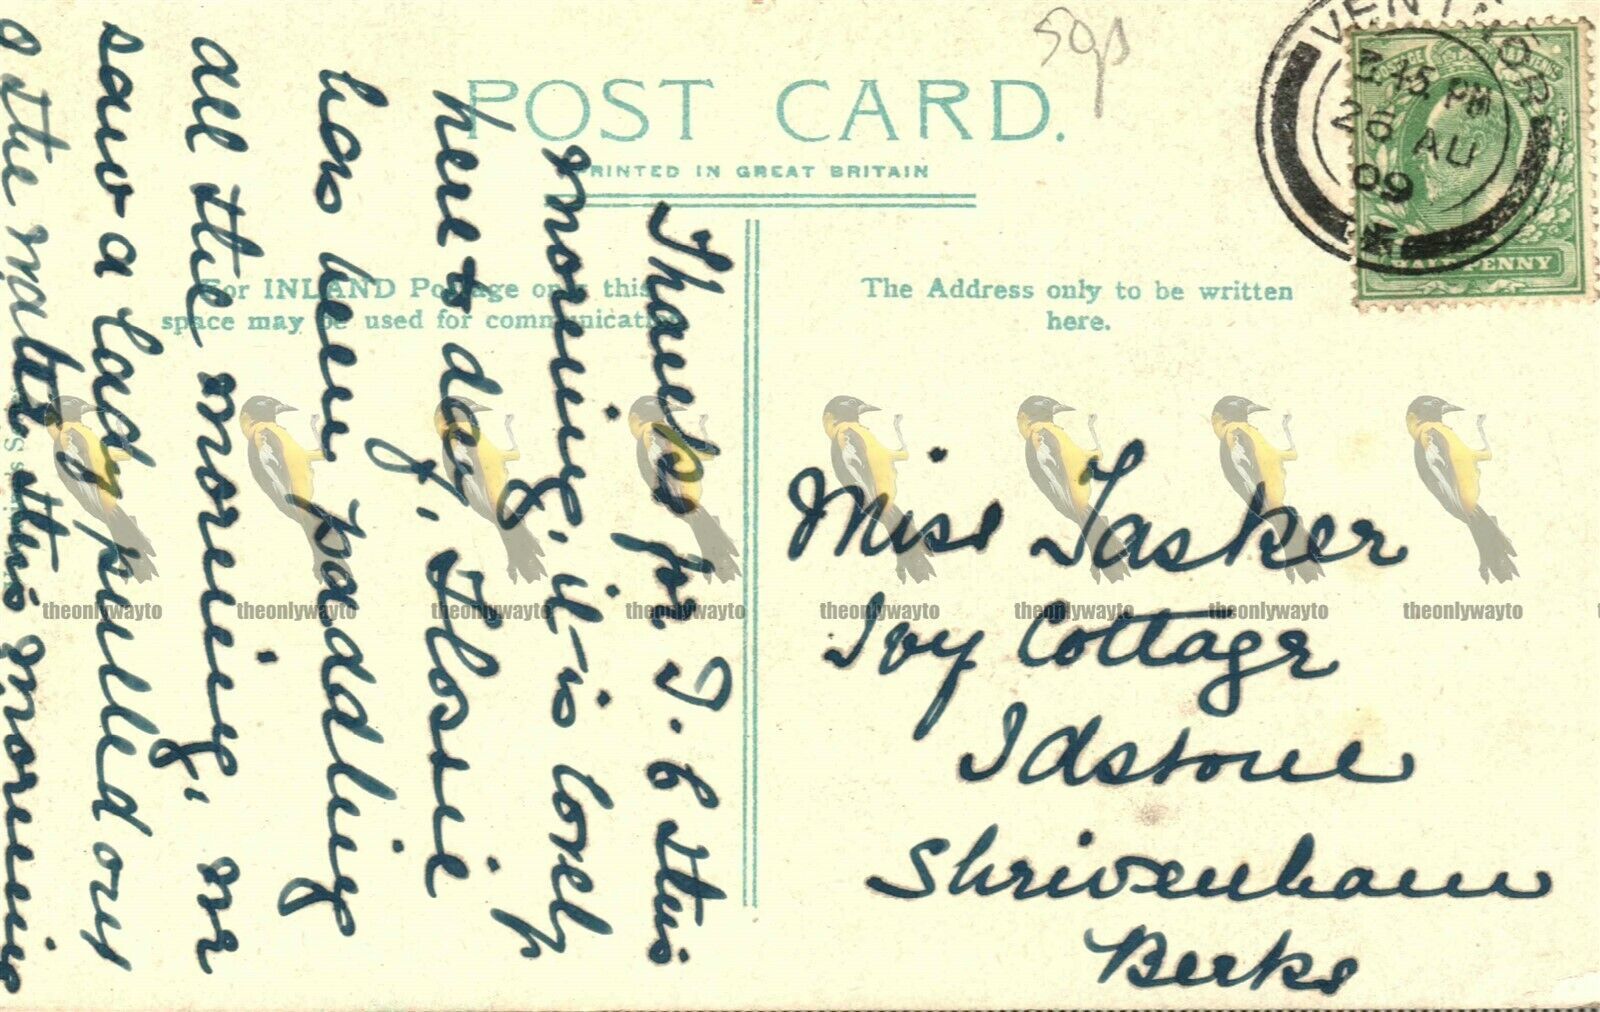 POST CARD.
PRINTED IN GREAT BRITAIN
For INLAND Postage only this
space may be used for communication
The Address only to be written
here.
VENTNOR
3.45 PM
26 AU
09
HALF PENNY
50p
Thanks for T. C this
morning, it is lovely
here to day, Flossie
has been paddling
all the morning, we
saw a lady pulled out
o the water this morning
Miss Tasker
Ivy Cottage
Idstone
Shrivenham
Berks
theonlywayto theonlywayto theonlywayto theonlywayto theonlywayto theonlywayto theonlywayto theonlywayto